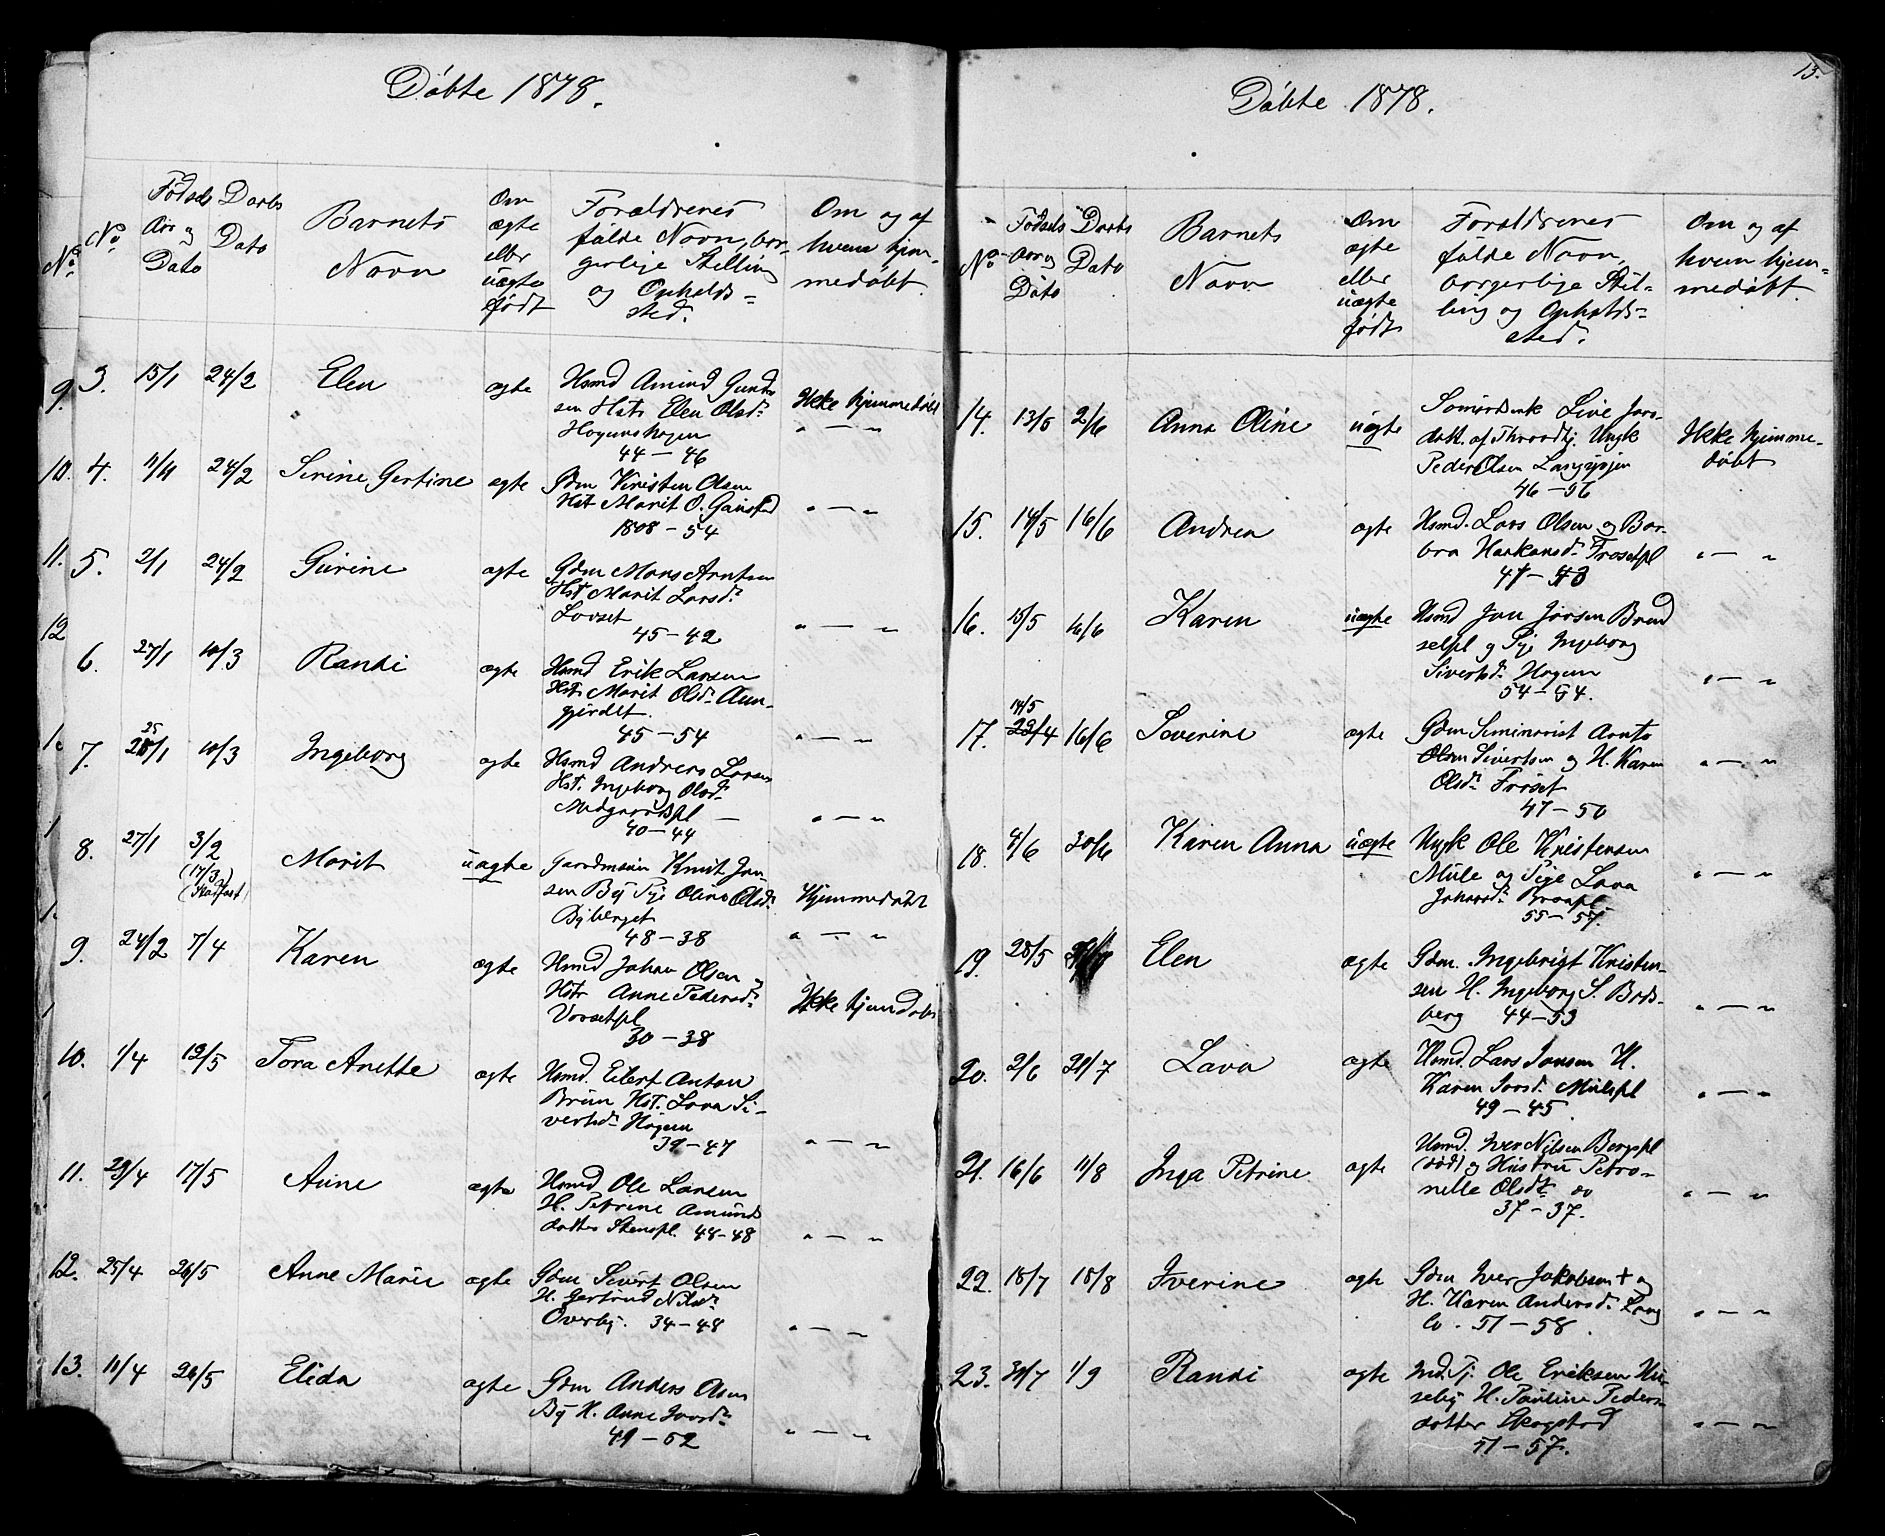 Döbte 1878.
No. No. Fødsels Aar og Dato Daabs Dato Barnets Navn Om ægte eller uægte født Forældrenes fulde Navn, borgerlige Stilling og Opholdssted. Om og af hvem hjemmedøbt.
9. 3. 15/1 24/2 Elen ægte Hsmd Amund
sen Hst. Elen Olsd.
44 – 46
Ikke hjemmedøbt
„ — „
10. 4. 24/2 Serine Gertine ægte Gdm Kristen Olsen
Hst Marit O.
1808 – 54
„ — „
11. 5. 2/1 24/2 Gurine ægte Gdm Mons Arntsen
Hst Marit Larsd.
45 – 42
„ — „
12
6. 27/1 10/3 Randi ægte Hsmd Erik Larsen
Hst. Marit Olsd. Aun-
gjerdet.
45 – 54
„ — „
7. 25/1 10/3 Ingeborg ægte Hsmd Anders Larsen
Hst. Ingeborg Olsd.
40 – 44
„ — „
8. 27/1 3/2 (17/3) Marit uægte Gaardmand Knut Jon-
sen By Pige Olina Olsd.
Byberget
48 – 38
Hjemmedøbt
„ — „
9. 24/2 7/4 Karen ægte Hsmd Johan Olsen og
Hstr Anne Pedersd.
30 – 38
Ikke hjemdøbt
10. 1/4 12/5 Tora Anette ægte Hsmd. Eilert Anton
Brun Hst. Lava Si-
vertsd. Hagen
39 – 47
„ — „
11. 29/4 17/5 Anne ægte Hsmd Ole Larsen
H. Petrine Amunds
datter Stenspl. 48–48
„ — „
12. 25/4 26/5 Anne Marie ægte Gdm Sivert Olsen
H. Gertrud Nilsd.
Överby. 34 – 48
„ — „
13. 11/4 26/5 Elida ægte Gdm Anders
By H. Anne
49 – 52
„ — „
13.
Döbte 1878.
No. Fødsels Aar og Dato Daabs Dato Barnets Navn Om ægte eller uægte født Forældrenes fulde Navn, borgerlige Stilling og Opholdssted. Om og af hvem hjemmedøbt.
14. 13/5 2/6 Anna Oline uægte Live
datt. af Ungk
Peder Olsen
46 – 56
Ikke hjemme-
döbt
15. 14/5 16/6 Andrea ægte Hsmd. Lars Olsen og Bar-
bra Haakansd. Frösetpl
„ — „
16. 15/5 16/6 Karen uægte Hsmd Jon
selpl og Pige Ingeborg
Sivertsd. Hagen
54 – 54.
„ — „
17. 14/5 16/6 Severine ægte Gdm Seminarist Arnt
Olsen Sivertsen og H. Karen
Olsd. Fröset
47 – 50
„ — „
18. 4/6 30/6 Karen Anna uægte Ungk Ole Kristensen
Mule og Pige Lava
55 – 57.
„ — „
19. 28/5 Elen ægte Gdm. Ingebrigt Kristen-
sen H. Ingeborg S. Bods-
berg 44 – 53
„ — „
20. 2/6 21/7 Lava ægte Hsmd. Lars Jonsen H.
Karen Mulepl
49 – 45.
„ — „
21. 16/6 11/8 Inga Petrine ægte Hsmd. Iver Nilsen Bergspl
(død) og Hustru Petro-
nelle Olsdt. do
37 – 37.
„ — „
22. 18/7 18/8 Iverine ægte Gdm Iver Jakobsen + og
H. Karen Andersd. Lang
lo. 51 – 58.
„ — „
23. 30/7 1/9 Randi ægte Ole Eriksen Hu-
seby H. Pauline Peders-
datter Skogstad
51 – 57.
„ — „